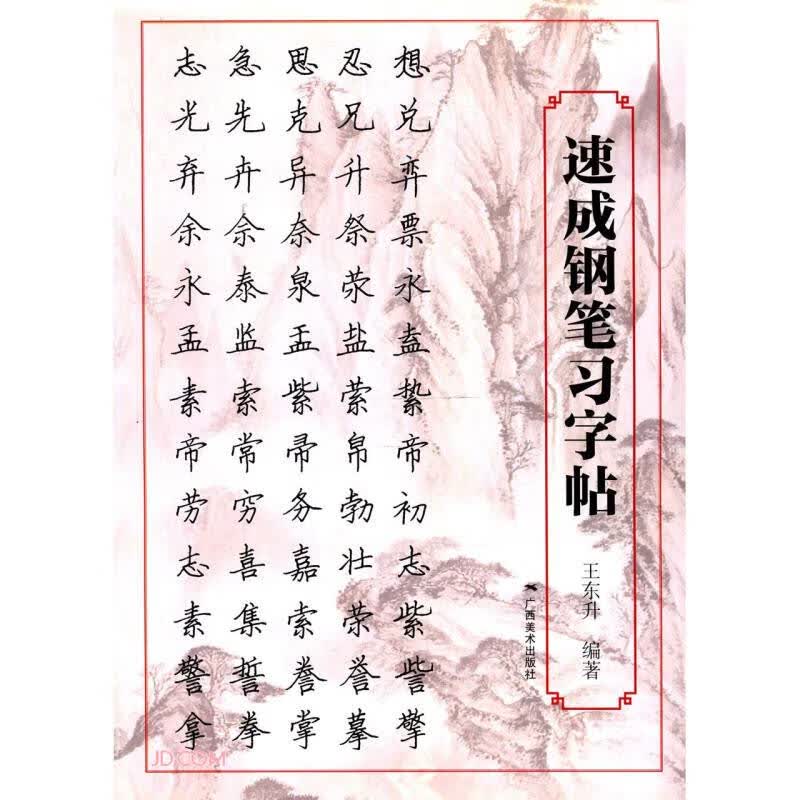 志急思忍想
光先克兄兑
弃卉异升弈
余佘奈祭票
永泰泉荥永
孟监盂盐盍
素索紫萦絷
帝常帚帛帝
劳穷务勃初
志喜嘉壮志
素集索荣紫
警誓誊誉訾
拿拳掌摹擎
速成钢笔习字帖
王东升 编著
广西美术出版社
JD.COM